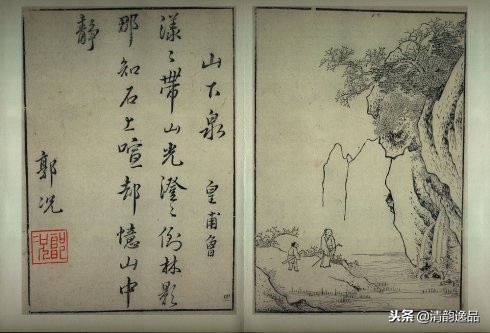 山下泉 皇甫曾
漾〻帶山光澄〻倒林影
那知石上喧却憶山中
靜
郭况
头条 @清韵逸品